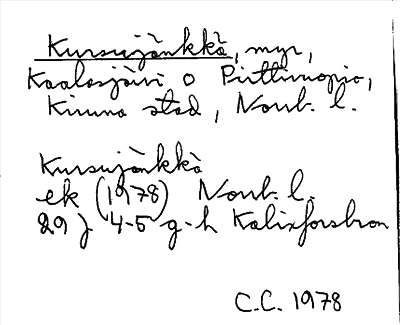 Kursujänkkä, myr,
Kaalasjärvi o Pirttivuopio,
Kiruna stad, Norrb. l.
Kursujänkkä
ek (1978) Norrb. l.
29 J 4-5 g-h Kalixforsbron
C.C. 1978